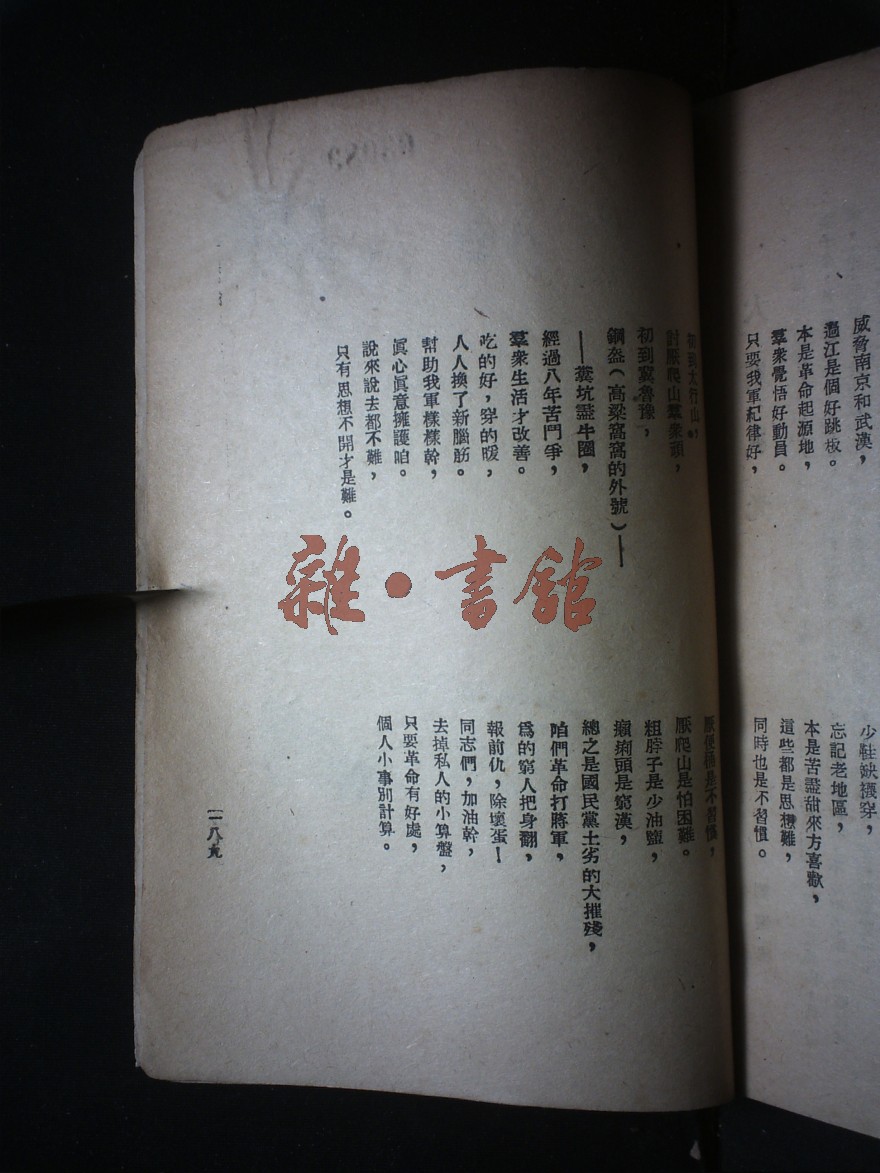 威脅南京和武漢，
過江是個好跳板。
本是革命起源地，
羣衆覺悟好動員。
只要我軍紀律好，
少鞋缺襪穿，
忘記老地區，
本是苦盡甜來方喜歡，
這些都是思想難，
同時也是不習慣。
初到太行山，
討厭爬山羣衆頑，
初到冀魯豫，
鋼盔（高粱窩窩的外號）——
——糞坑盡牛圈，
經過八年苦鬥爭，
羣衆生活才改善。
吃的好，穿的暖，
人人換了新腦筋。
幫助我軍樣樣幹，
眞心眞意擁護咱。
說來說去都不難，
只有思想不開才是難。
厭便桶是不習慣，
厭爬山是怕困難。
粗脖子是少油鹽，
癩痢頭是窮漢，
總之是國民黨土劣的大摧殘，
咱們革命打將軍，
爲的窮人把身翻，
報前仇，除壞蛋！
同志們，加油幹，
去掉私人的小算盤，
只要革命有好處，
個人小事別計算。
一八九
雜·書館